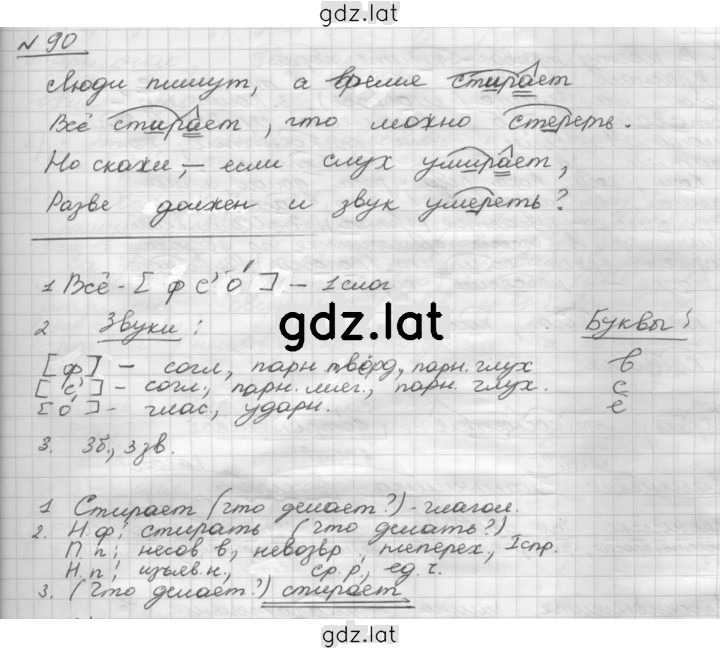 gdz.lat
№ 90
Люди пишут, а время стирает
Всё стирает, что можно стереть.
Но скажи, - если слух умирает,
Разве должен и звук умереть?
1 Всё - [ф с' о́] - 1 слог
gdz.lat
2 Звуки: Буквы:
[ф] - согл, парн твёрд, парн. глух в
[с'] - согл., парн. мяг., парн. глух. с
[о́] - глас, ударн. ё
3. 3б., 3 зв.
1 Стирает (что делает?) - глагол.
2. Н.ф: стирать (что делать?)
П.п: несов. в, невозвр, перех, I спр.
Н.п: изъяв. н., ср. р, ед. ч.
3. (Что делает?) стирает
gdz.lat